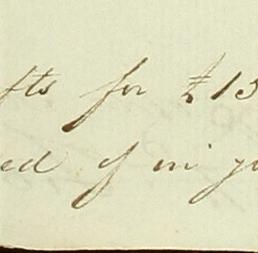 fts for £15
ed of in yo